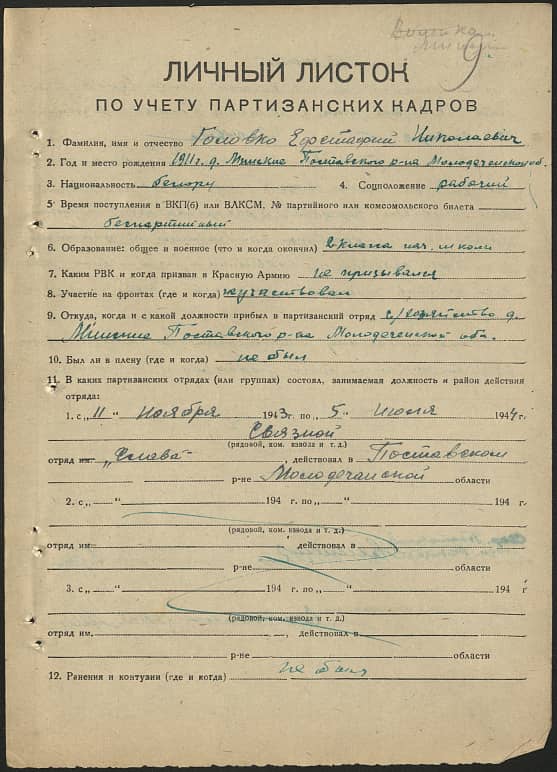 ЛИЧНЫЙ ЛИСТОК
ПО УЧЕТУ ПАРТИЗАНСКИХ КАДРОВ
1. Фамилия, имя и отчество Головко Ефстафий Николаевич
2. Год и место рождения 1911 г. д. Мински Поставского р-на Молодеченской об.
3. Национальность белору 4. Соцположение рабочий
5. Время поступления в ВКП(б) или ВЛКСМ, № партийного или комсомольского билета
беспартийный
6. Образование: общее и военное (что и когда окончил) 2 класса нач. школы
7. Каким РВК и когда призван в Красную Армию не призывался
8. Участие на фронтах (где и когда) не участвовал
9. Откуда, когда и с какой должности прибыл в партизанский отряд с/хозяйство д.
Мински Поставского р-на Молодеченской обл.
10. Был ли в плену (где и когда) не был
11. В каких партизанских отрядах (или группах) состоял, занимаемая должность и район действия
отряда:
1. с „11“ ноября 1943 г. по „5“ июля 1944 г.
Связной
(рядовой, ком. взвода и т. д.)
отряд им. „Слава“, действовал в Поставском
р-не Молодечанской области
2. с „ “ 194 г. по „ “ 194 г.
(рядовой, ком. взвода и т. д.)
отряд им. действовал в
р-не области
3. с „ “ 194 г. по „ “ 194 г
(рядовой, ком. взвода и т. д.)
отряд им. , действовал в
р-не области
12. Ранения и контузии (где и когда) не был